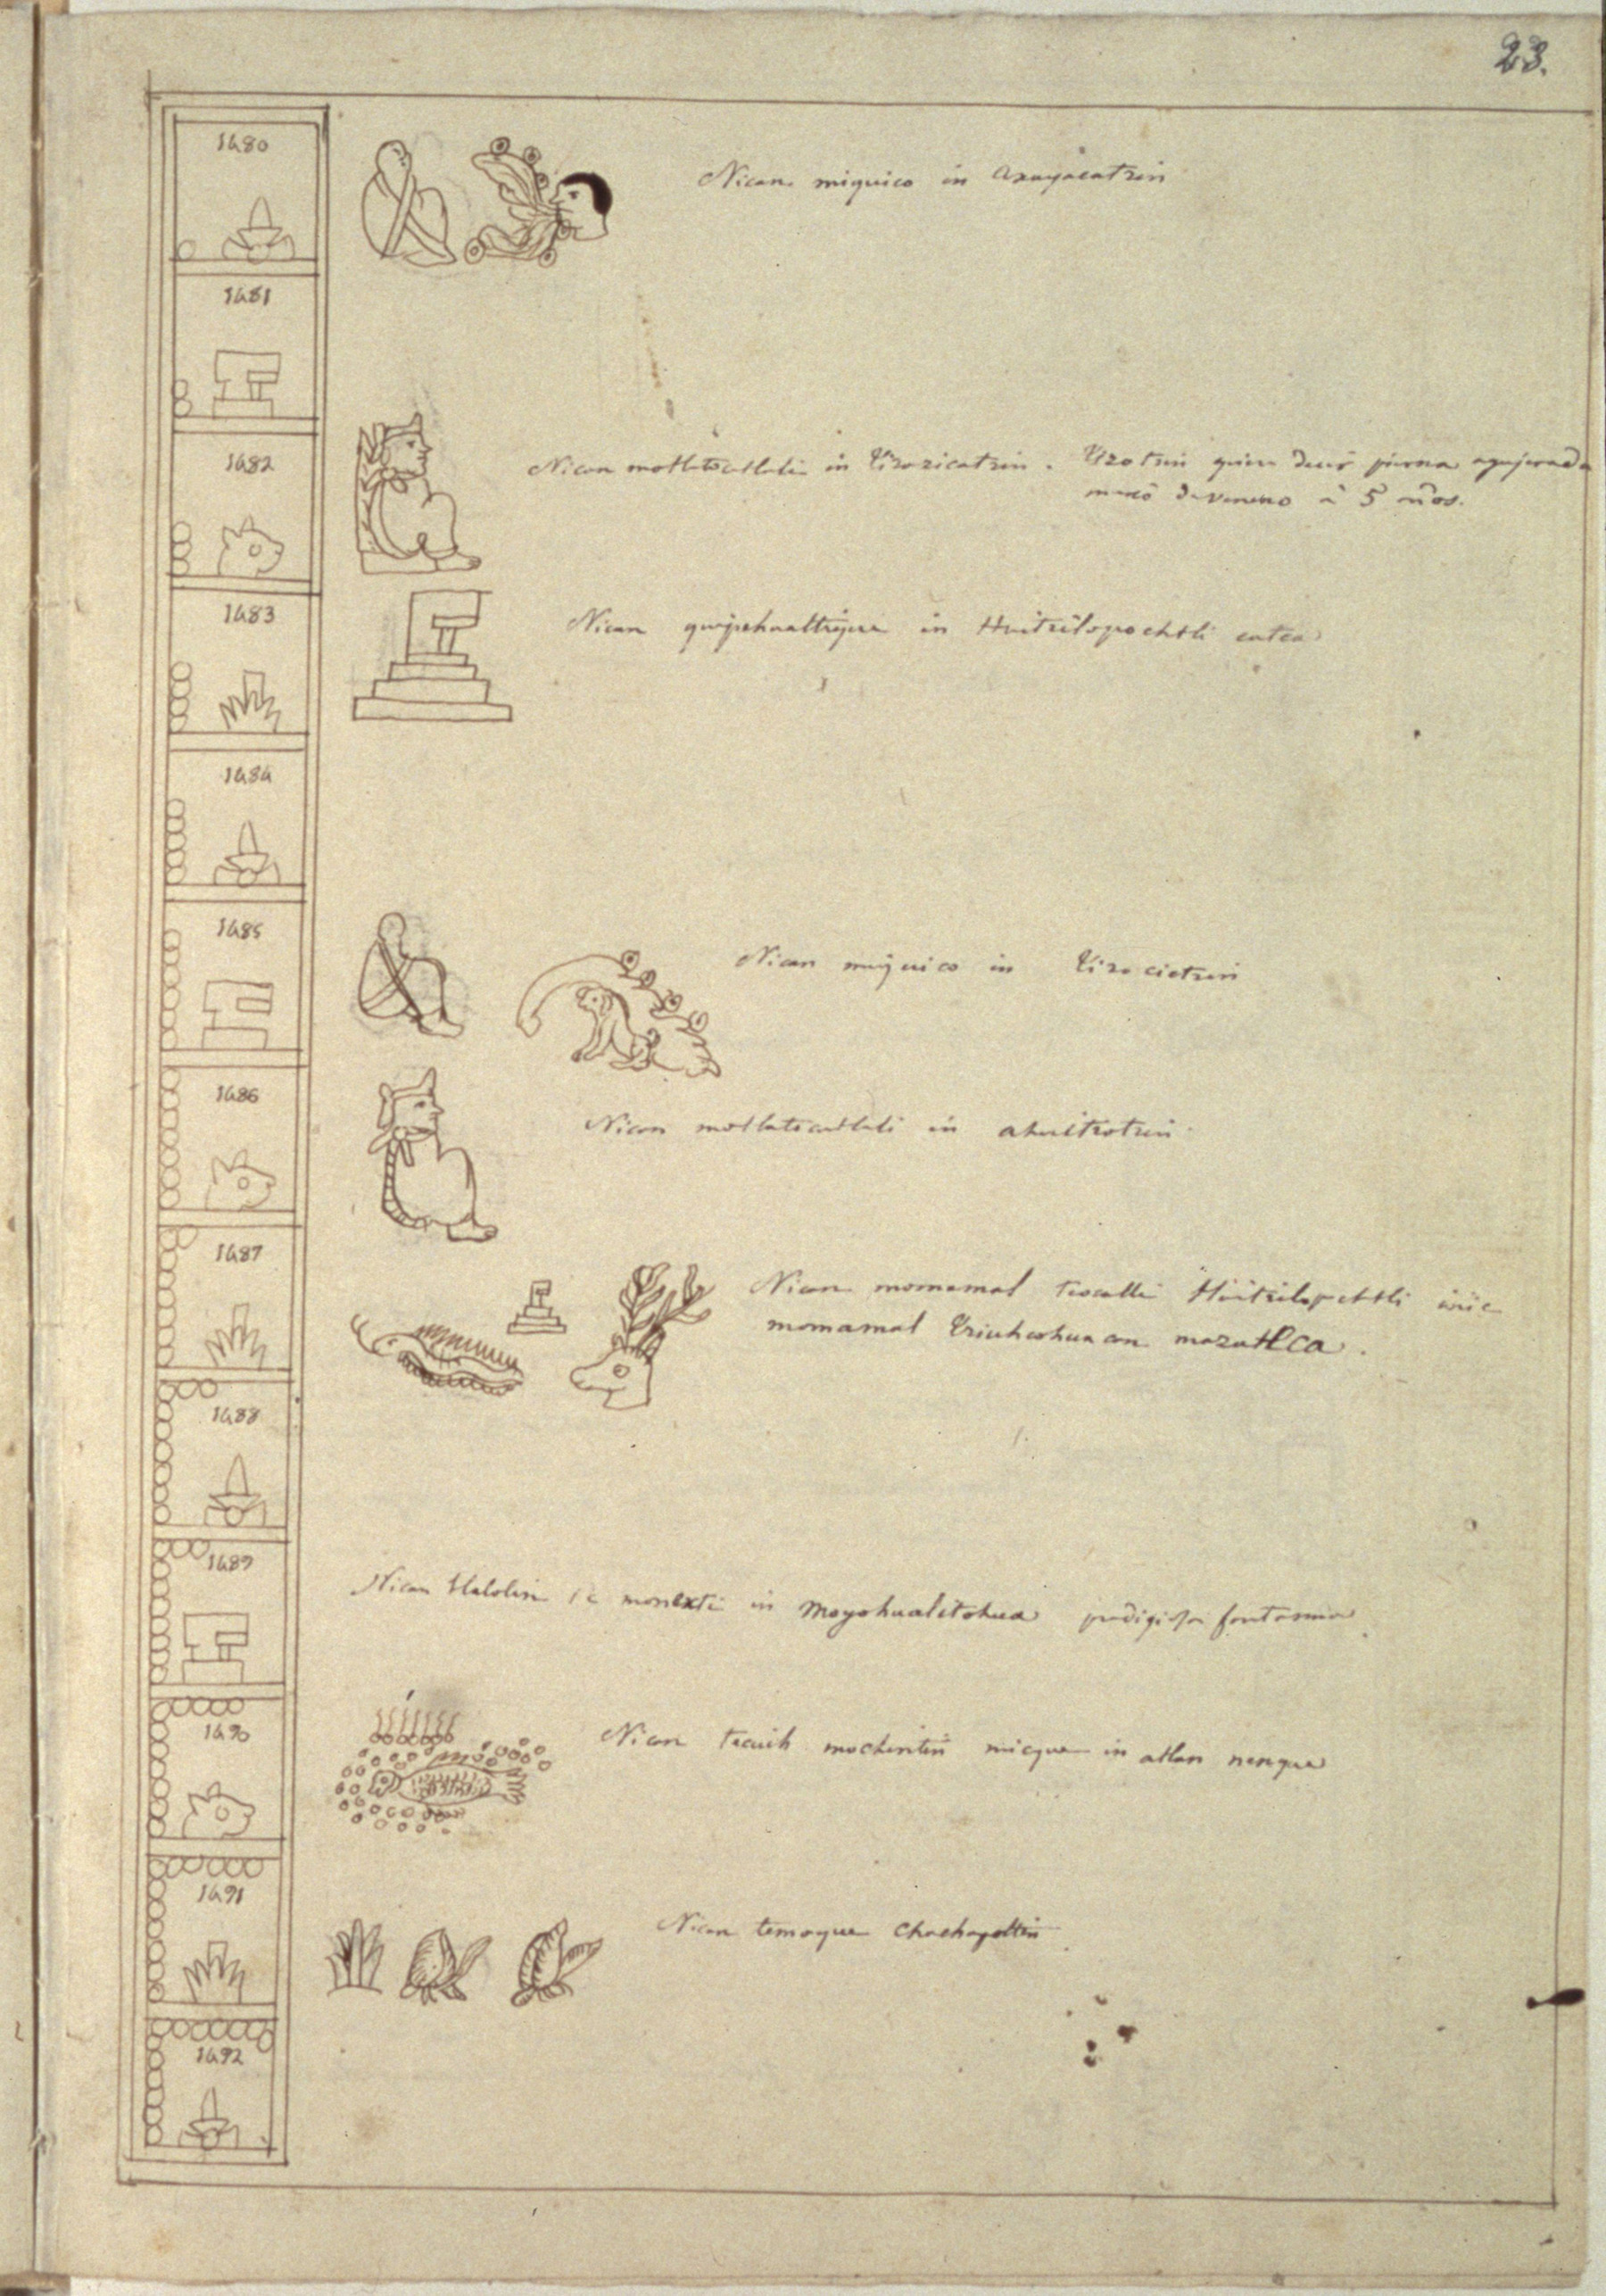 23.
1480
Nican miquico in axayacatzin
1481
1482
Nican motlatocatlali in Tizozicatzin. Tizotzin quiere decir pierna agujerada
murió de veneno a 5 años.
1483
Nican quipehualtique in Huitzilopochtli catca
1484
1485
Nican miquico in Tizocictzin
1486
Nican motlatocatlali in ahuitzotzin
1487
Nican momamal teocalli Huitzilopochtli inic
momamal tziuhcohuacan mazatlca.
1488
1489
Nican tlalolin ic monexti in moyohualitohua prodigiosa fantasma.
1490
Nican teciuh mochintin micque in atlan nenque
1491
Nican temoque chachapoltin.
1492